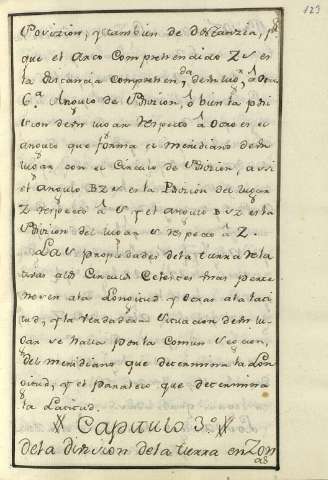 123
Povizion, y tambien de distanzia, p.r
que el Arco Comprehendido Z S es
la distancia comprehen.da de un lug.r â otro
6.a Angulo de Posizion, ô bien la posi
cion de un lugar respecto â otro es el
angulo que forma el meridiano de un
lugar con el Circulo de Posizion, assi
el angulo B Z S es la Posizion del lugar
Z respecto â S y el angulo B S Z es la
Posizion del lugar S respecto â Z.
Las propiedades de la tierra rela
tivas a los Circulos Celestes mas perte
necen a la Longitud y otras a la lati
tud, y la verdadera situacion de un lu
gar se halla por la Comun Seccion,
del meridiano que determina la Lon
gitud, y el paralelo que determina
la Latitud.
Capitulo 3.o
de la division de la tierra en Zon
as